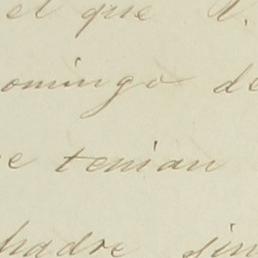 el que A.
omingo de
e tenian
hadre sin